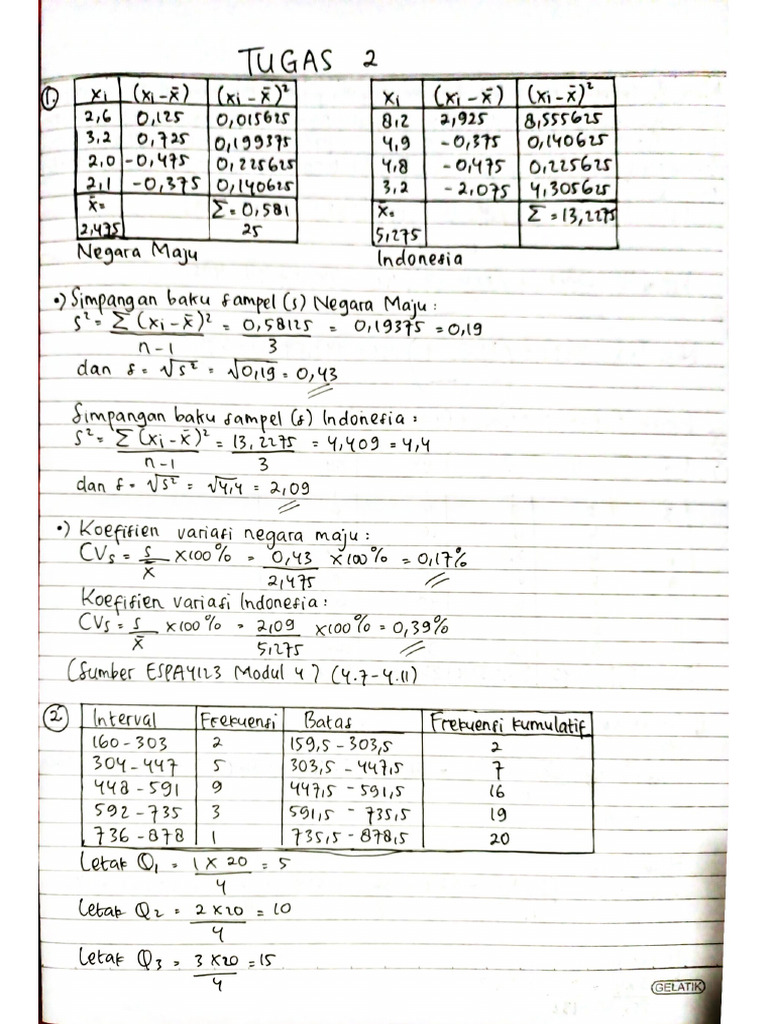 TUGAS 2
1.
Xi (xi-x̄) (xi-x̄)²
2,6 0,125 0,015625
3,2 0,725 0,199375
2,0 -0,475 0,225625
2,1 -0,375 0,140625
x̄= Σ=0,581
2,475 25
Negara Maju
Xi (xi-x̄) (xi-x̄)²
8,2 2,925 8,555625
4,9 -0,375 0,140625
4,8 -0,475 0,225625
3,2 -2,075 4,305625
x̄= Σ=13,2275
5,275
Indonesia
•) Simpangan baku sampel (s) Negara Maju:
s²= Σ(xi-x̄)² = 0,58125 = 0,19375 = 0,19
n-1 3
dan s= √s² = √0,19 = 0,43
Simpangan baku sampel (s) Indonesia:
s²= Σ(xi-x̄)² = 13,2275 = 4,409 = 4,4
n-1 3
dan s= √s² = √4,4 = 2,09
•) Koefisien variasi negara maju:
CVs = s x100% = 0,43 x100% = 0,17%
x̄ 2,475
Koefisien variasi Indonesia:
CVs = s x100% = 2,09 x100% = 0,39%
x̄ 5,275
(Sumber ESPA4123 Modul 4) (4.7-4.11)
2. Interval Frekuensi Batas Frekuensi kumulatif
160-303 2 159,5-303,5 2
304-447 5 303,5-447,5 7
448-591 9 447,5-591,5 16
592-735 3 591,5-735,5 19
736-878 1 735,5-878,5 20
Letak Q1 = 1 x 20 = 5
4
Letak Q2 = 2 x 20 = 10
4
Letak Q3 = 3 x 20 = 15
4
GELATIK